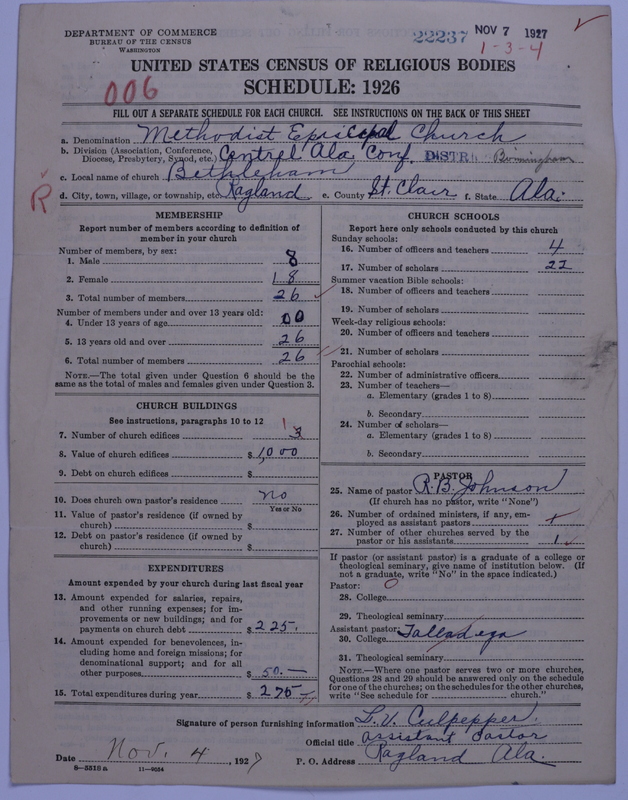 DEPARTMENT OF COMMERCE
BUREAU OF THE CENSUS
WASHINGTON
22237 NOV 7 1927
1-3-4
UNITED STATES CENSUS OF RELIGIOUS BODIES
006
SCHEDULE: 1926
FILL OUT A SEPARATE SCHEDULE FOR EACH CHURCH. SEE INSTRUCTIONS ON THE BACK OF THIS SHEET
a. Denomination Methodist Episcopal Church
b. Division (Association, Conference, Diocese, Presbytery, Synod, etc.) Central Ala Conf. DISTR. Birmingham
c. Local name of church Bethleham
R
d. City, town, village, or township, etc. Ragland e. County St. Clair f. State Ala.
MEMBERSHIP
Report number of members according to definition of
member in your church
Number of members, by sex:
1. Male 8
2. Female 18
3. Total number of members 26
Number of members under and over 13 years old:
4. Under 13 years of age 00
5. 13 years old and over 26
6. Total number of members 26
NOTE.—The total given under Question 6 should be
same as the total of males and females given under Question 3.
CHURCH BUILDINGS
See instructions, paragraphs 10 to 12
7. Number of church edifices 1
8. Value of church edifices $ 1,000
9. Debt on church edifices $
10. Does church own pastor's residence no
Yes or No
11. Value of pastor's residence (if owned by
church) $
12. Debt on pastor's residence (if owned by
church) $
EXPENDITURES
Amount expended by your church during last fiscal year
13. Amount expended for salaries, repairs,
and other running expenses; for im-
provements or new buildings; and for
payments on church debt $ 225.
14. Amount expended for benevolences, in-
cluding home and foreign missions; for
denominational support; and for all
other purposes $ 50.—
15. Total expenditures during year $ 275
CHURCH SCHOOLS
Report here only schools conducted by this church
Sunday schools:
16. Number of officers and teachers 4
17. Number of scholars 22
Summer vacation Bible schools:
18. Number of officers and teachers
19. Number of scholars
Week-day religious schools:
20. Number of officers and teachers
21. Number of scholars
Parochial schools:
22. Number of administrative officers
23. Number of teachers—
a. Elementary (grades 1 to 8)
b. Secondary
24. Number of scholars—
a. Elementary (grades 1 to 8)
b. Secondary
PASTOR
25. Name of pastor R. B. Johnson
(If church has no pastor, write "None")
26. Number of ordained ministers, if any, em-
ployed as assistant pastors
27. Number of other churches served by the
pastor or his assistants 1
If pastor (or assistant pastor) is a graduate of a college or
theological seminary, give name of institution below. (If
not a graduate, write "No" in the space indicated.)
Pastor: 0
28. College
29. Theological seminary
Assistant pastor:
30. College Talladega
31. Theological seminary
NOTE.—Where one pastor serves two or more churches,
Questions 28 and 29 should be answered only on the schedule
for one of the churches; on the schedules for the other churches,
write "See schedule for church."
Signature of person furnishing information L. V. Culpepper.
Official title assistant Pastor
Date Nov. 4, 1927 P. O. Address Ragland Ala.
8—5518a 11—9054